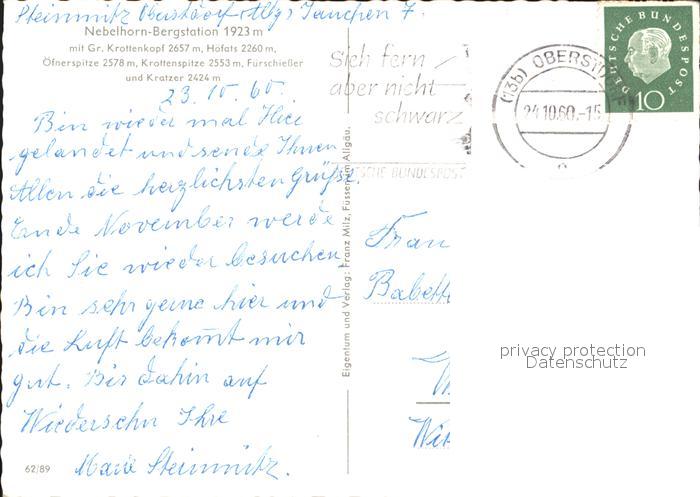 Steinmitz Oberstdorf Allg,
Nebelhorn-Bergstation 1923 m
mit Gr. Krottenkopf 2657 m, Höfats 2260 m,
Öfnerspitze 2578 m, Krottenspitze 2553 m, Fürschießer
und Kratzer 2424 m
23.10.60.
Bin wieder mal Hier
gelandet und sende Ihnen
Allen die herzlichsten Grüße.
Ende November werde
ich Sie wieder besuchen
Bin sehr gerne hier und
die Luft bekommt mir
gut. Bis dahin auf
Wiedersehn Ihre
Marie Steinmitz.
62/89
Eigentum und Verlag: Franz Milz, Füssen im Allgäu.
Sich fern
aber nicht
schwarz
DEUTSCHE BUNDESPOST
(13b) OBERST
24.10.60.-15
DEUTSCHE BUNDESPOST
10
Frau
privacy protection
Datenschutz